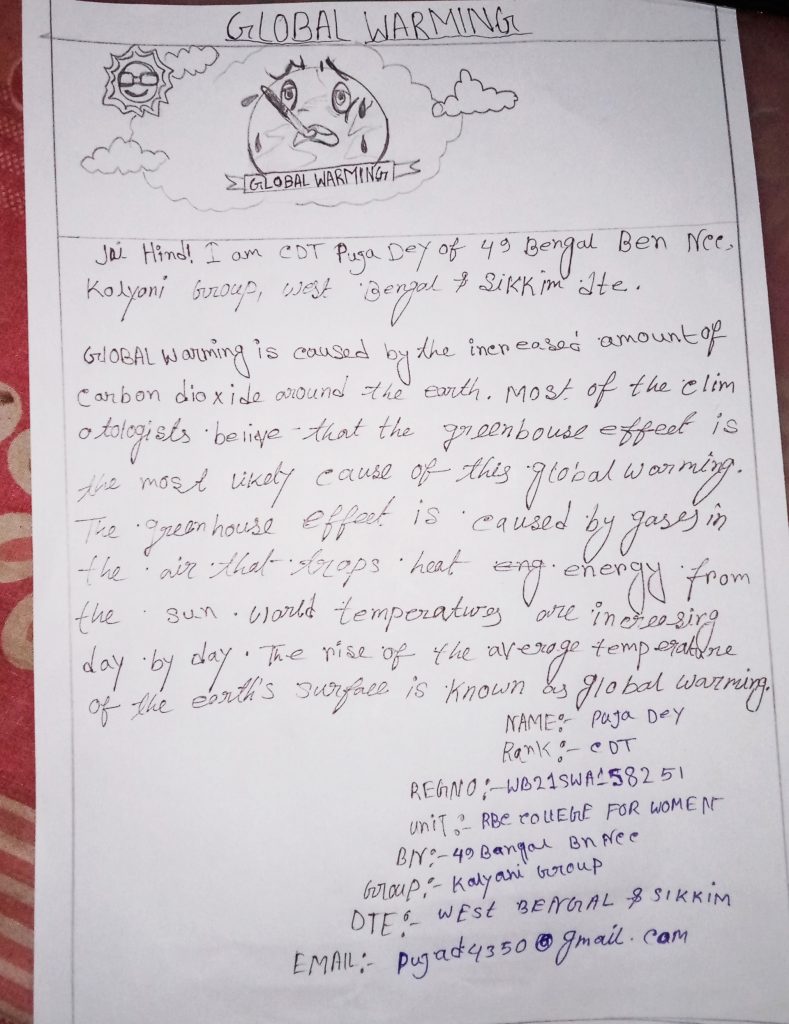 GLOBAL WARMING
GLOBAL WARMING
Jai Hind! I am CDT Puja Dey of 49 Bengal Ben Ncc,
Kalyani Group, West Bengal & Sikkim dte.
GlOBAL Warming is caused by the increased amount of
Carbon dioxide around the earth. Most of the clim
atologists belive that the greenhouse effect is
the most likely cause of this global warming.
The greenhouse effect is caused by gases in
the air that traps heat eng energy from
the sun. World temperatures are increasing
day by day. The rise of the average temperature
of the earth's surface is known as global warming.
NAME:- Puja Dey
Rank:- CDT
REGNO:- WB21SWA158251
unit:- RBC COLLEGE FOR WOMEN
BN:- 49 Bangal Bn Ncc
Group:- Kalyani Group
DTE:- WEST BENGAL & SIKKIM
EMAIL:- Pujad4350@gmail.com